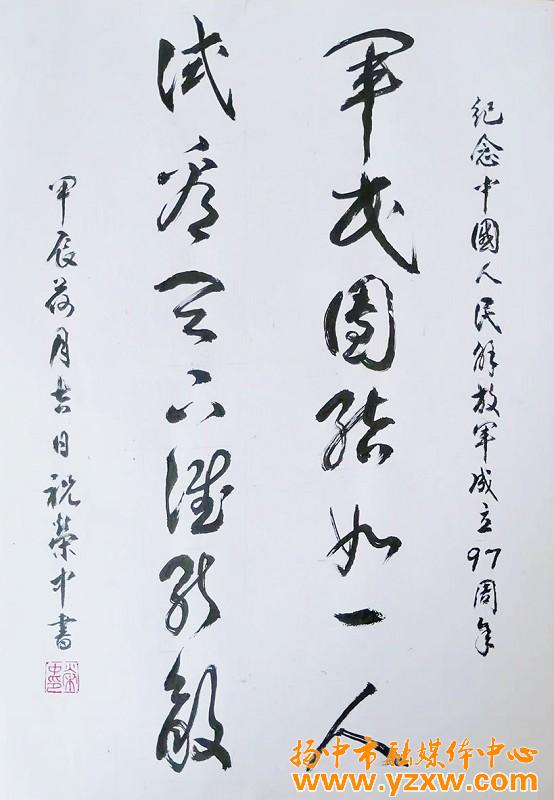 纪念中國人民解放军成立97周年
军民团结如一人
试看天下谁能敵
甲辰荷月吉日祝荣中書
扬中市融媒体中心
www.yzxw.com